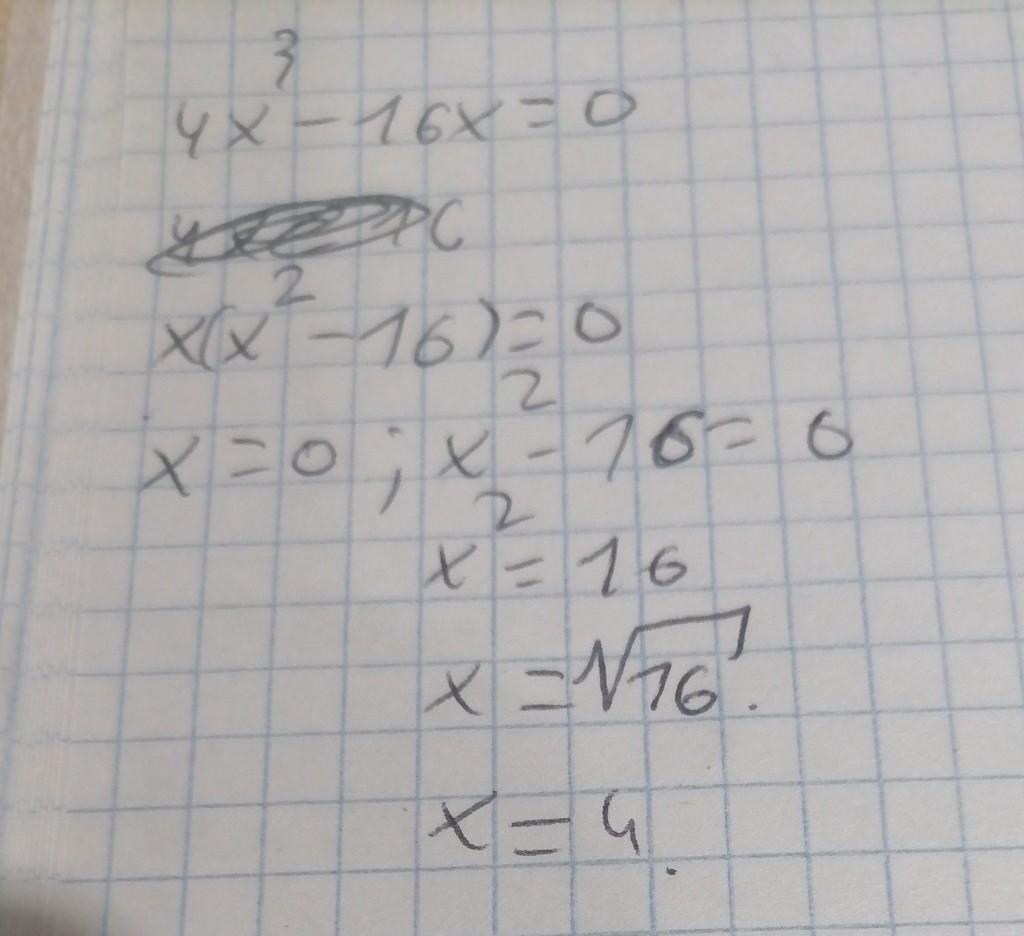 4x³ - 16x = 0
x(x² - 16) = 0
x = 0 ; x² - 16 = 0
x² = 16
x = √16.
x = 4.